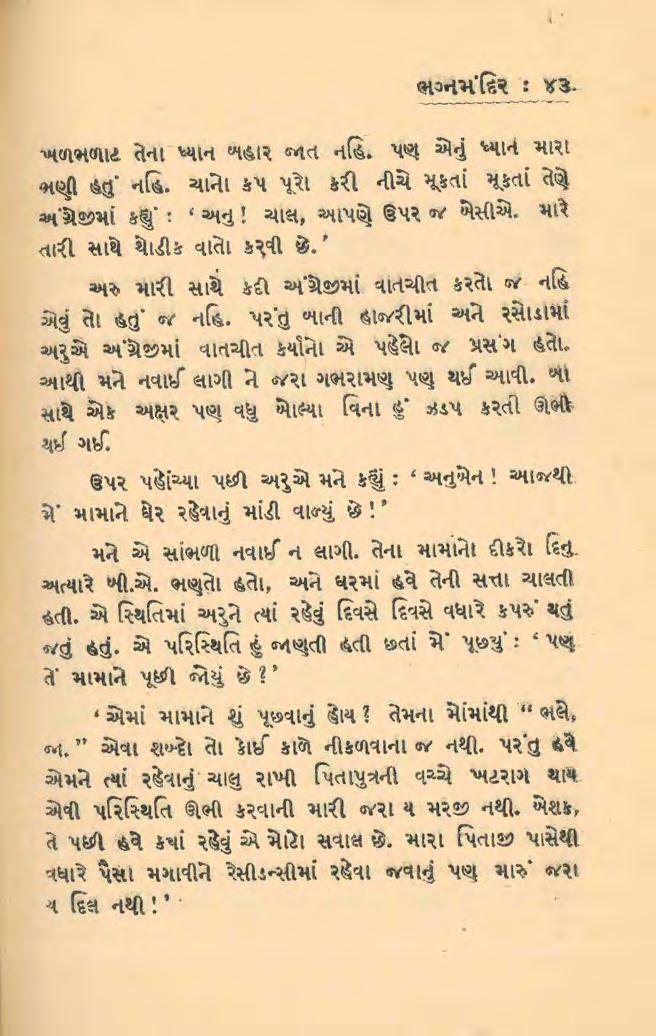 ભગ્નમંદિર : ૪૩.
ખળભળાટ તેના ધ્યાન બહાર જાત નહિ. પણ એનું ધ્યાન મારા
ભણી હતું નહિ. ચાનો કપ પૂરો કરી નીચે મૂકતાં મૂકતાં તેણે
અંગ્રેજીમાં કહ્યું : ‘ અનુ ! ચાલ, આપણે ઉપર જ બેસીએ. મારે
તારી સાથે થોડીક વાતો કરવી છે.’
અરુ મારી સાથે કદી અંગ્રેજીમાં વાતચીત કરતો જ નહિ
એવું તો હતું જ નહિ. પરંતુ બાની હાજરીમાં અને રસોડામાં
અરુએ અંગ્રેજીમાં વાતચીત કર્યાનો એ પહેલો જ પ્રસંગ હતો.
આથી મને નવાઈ લાગી ને જરા ગભરામણ પણ થઈ આવી. બા
સાથે એક અક્ષર પણ વધુ બોલ્યા વિના હું ઝડપ કરતી ઊભી
થઈ ગઈ.
ઉપર પહોંચ્યા પછી અરુએ મને કહ્યું : ‘ અનુબેન ! આજથી
મેં મામાને ઘેર રહેવાનું માંડી વાળ્યું છે !’
મને એ સાંભળી નવાઈ ન લાગી. તેના મામાનો દીકરો દિનુ
અત્યારે બી.એ. ભણતો હતો, અને ઘરમાં હવે તેની સત્તા ચાલતી
હતી. એ સ્થિતિમાં અરુને ત્યાં રહેવું દિવસે દિવસે વધારે કપરું થતું
જતું હતું. એ પરિસ્થિતિ હું જાણતી હતી છતાં મેં પૂછ્યું : ‘ પણ
તેં મામાને પૂછી જોયું છે ?’
‘ એમાં મામાને શું પૂછવાનું હોય ? તેમના મોંમાંથી “ ભલે,
જા. ” એવા શબ્દો તો કોઈ કાળે નીકળવાના જ નથી. પરંતુ હવે
એમને ત્યાં રહેવાનું ચાલુ રાખી પિતાપુત્રની વચ્ચે ખટરાગ થાય
એવી પરિસ્થિતિ ઊભી કરવાની મારી જરા ય મરજી નથી. બેશક,
તે પછી હવે ક્યાં રહેવું એ મોટો સવાલ છે. મારા પિતાજી પાસેથી
વધારે પૈસા મગાવીને રેસીડન્સીમાં રહેવા જવાનું પણ મારું જરા
ય દિલ નથી !’